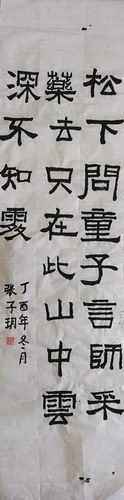 松下問童子言師采
藥去只在此山中雲
深不知處
丁酉年冬月
张子玥